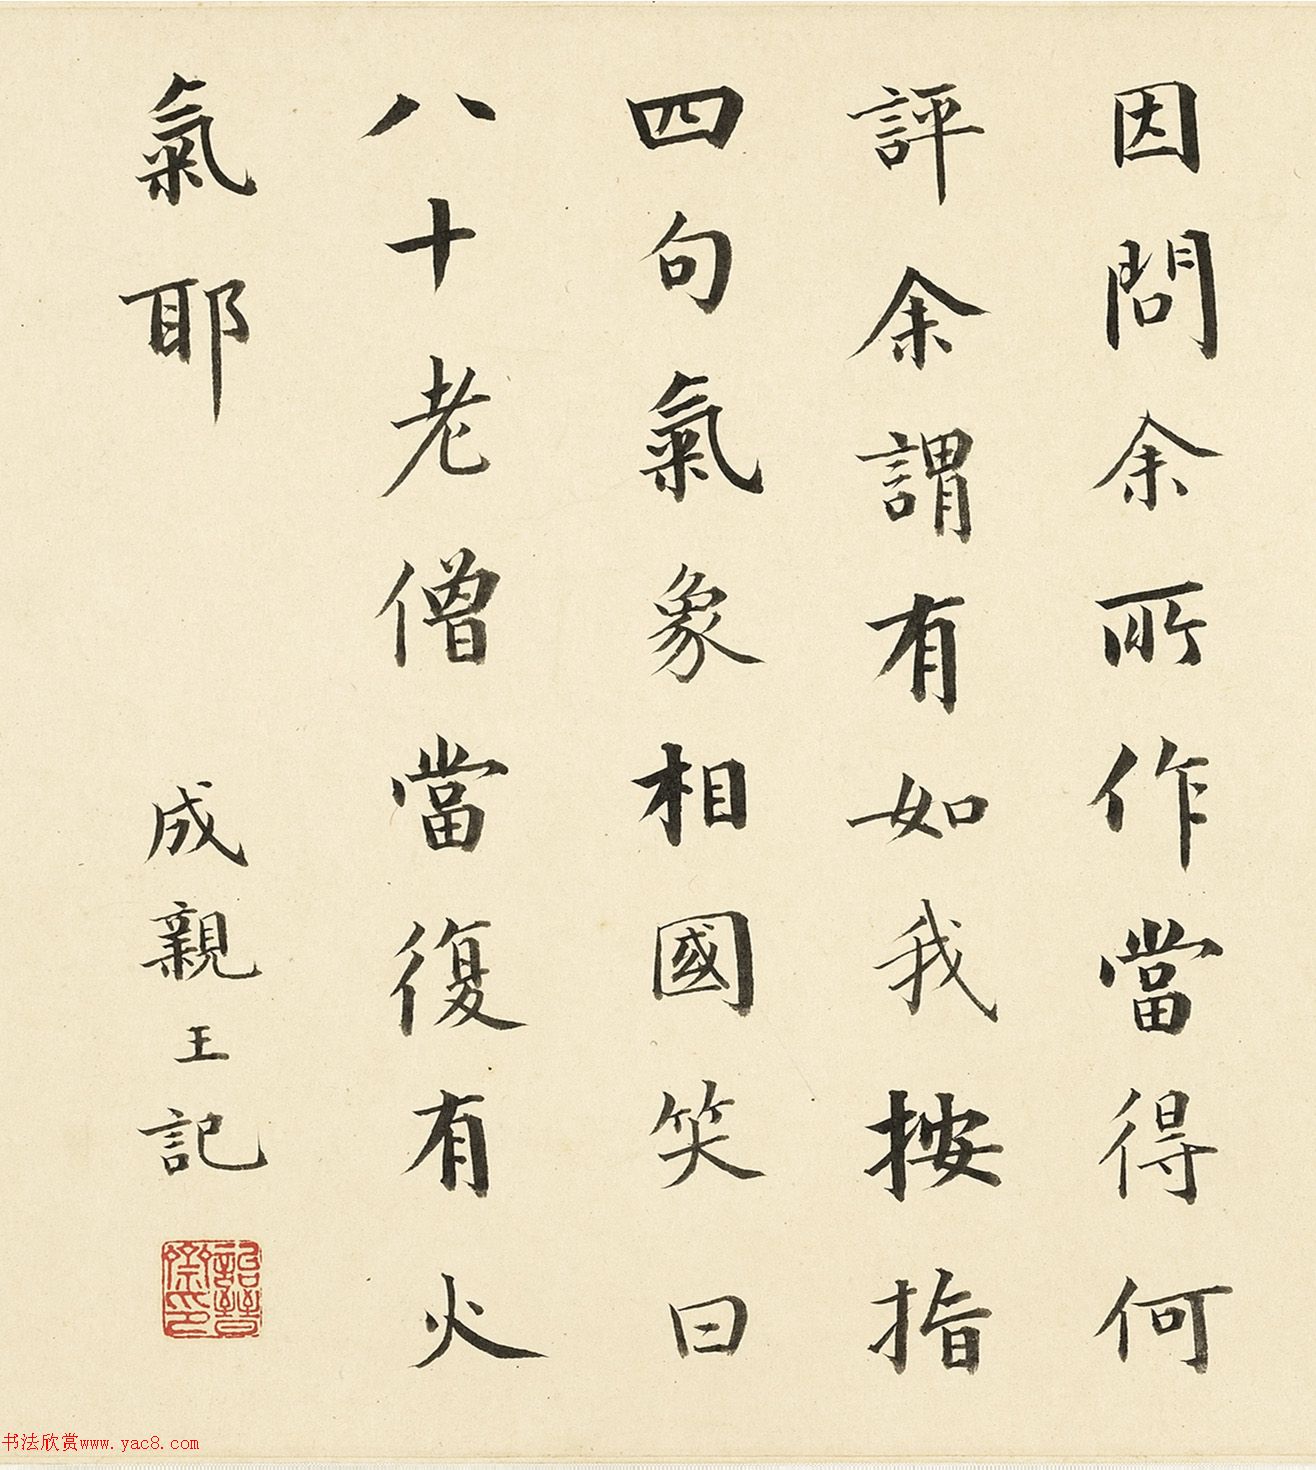 因問余所作當得何
評余謂有如我按指
四句氣象相國笑曰
八十老僧當復有火
氣耶
成親王記
詒晉齋印
书法欣赏www.yac8.com